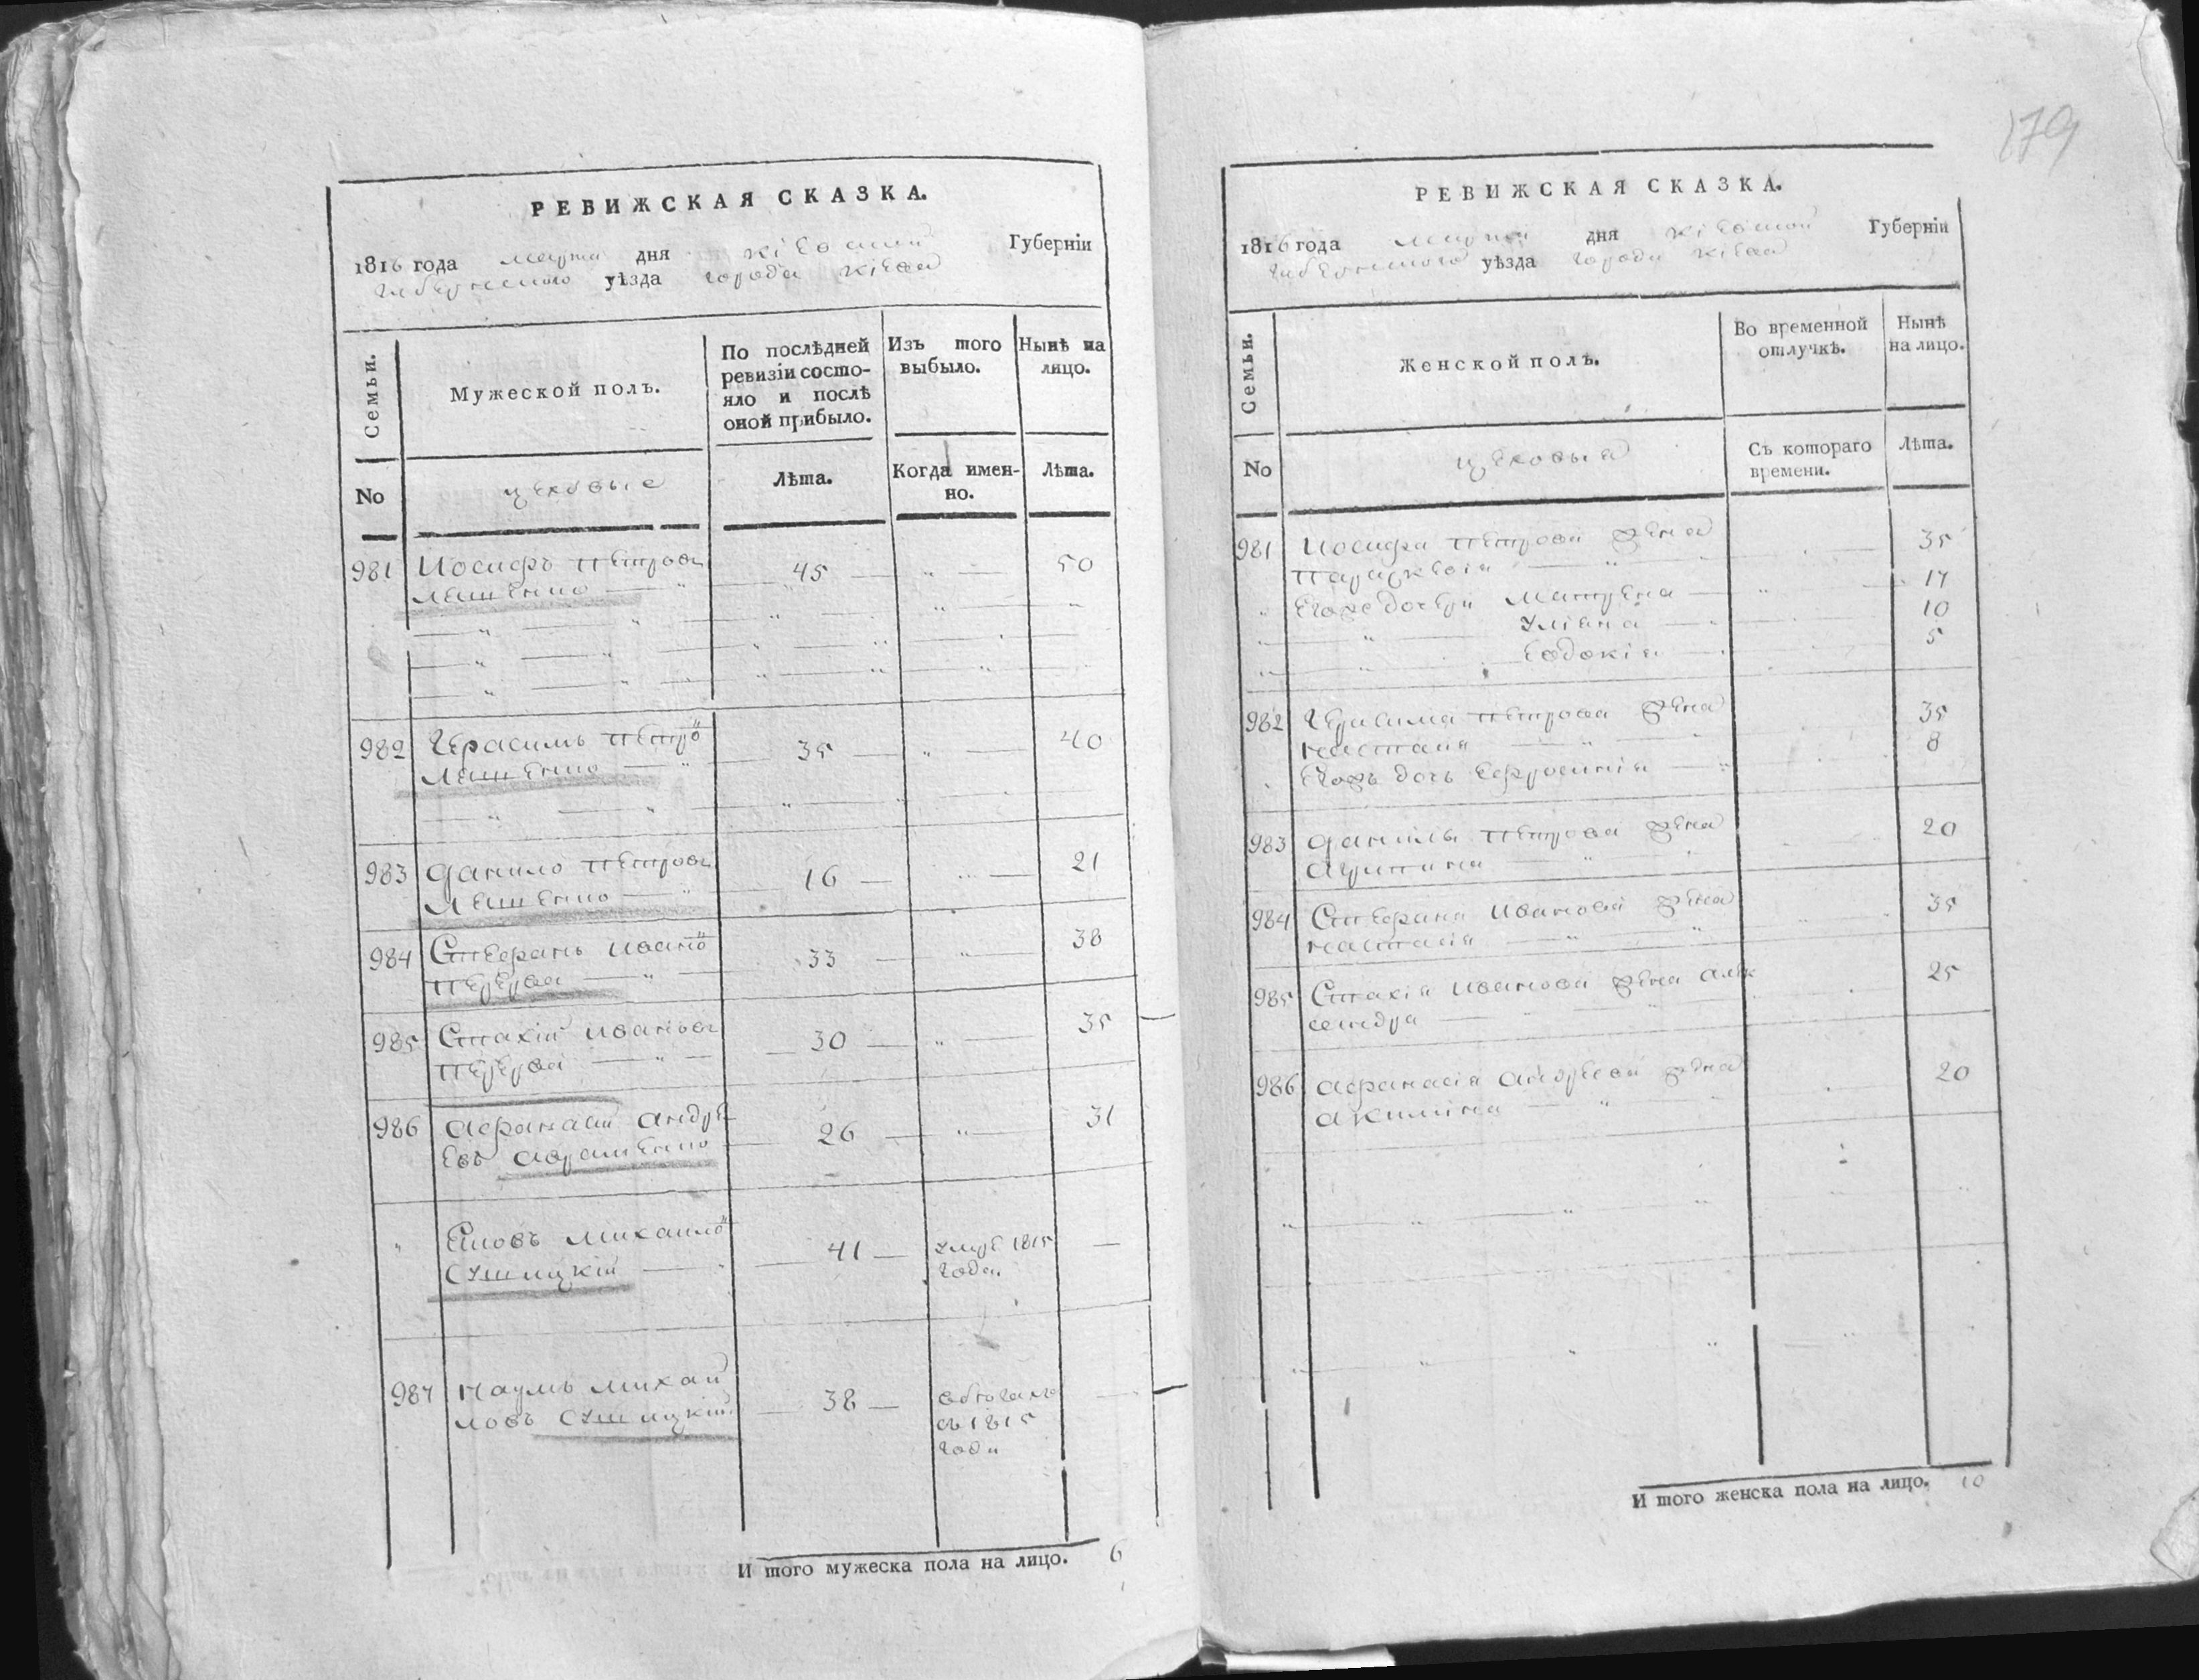 РЕВИЖСКАЯ СКАЗКА.
1816 года марта дня Кіевской Губерніи
Губернского уѣзда города Кіева
Семьи.
Мужеской полъ.
По послѣдней ревизіи состояло и послѣ оной прибыло.
Изъ того выбыло.
Нынѣ на лицо.
No
цеховые
Лѣта.
Когда именно.
Лѣта.
981 Иосифъ Петровъ 45 50
Лешенко
982 Герасимъ Петро 35 40
Лешенко
983 Данило Петровъ 16 21
Лешенко
984 Стефанъ Ивано 33 38
Перерва
985 Стахій Ивановъ 30 35
Перерва
986 Афанасій Андре 26 31
евъ Авраменко
Михаило 41 умре 1815
Сушицкій года
987 Наумъ Михай 38 в бегахъ
ловъ Сушицкій съ 1815
года
И того мужеска пола на лицо. 6
179
РЕВИЖСКАЯ СКАЗКА.
1816 года марта дня Кіевской Губерніи
Губернского уѣзда города Кіева
Семьи.
Женской полъ.
Во временной отлучкѣ.
Нынѣ на лицо.
No
цеховыя
Съ котораго времени.
Лѣта.
981 Иосифа Петрова жена 35
Параскевія
Егоже дочери Матрена 17
Уліяна 10
Евдокія 5
982 Герасима Петрова жена 35
Настасія
Егожъ дочь Ефросинія 8
983 Данилы Петрова жена 20
Агрипина
984 Стефана Иванова жена 35
Настасія
985 Стахія Иванова жена Алек 25
сендра
986 Афанасія Андреева жена 20
Акилина
И того женска пола на лицо. 10